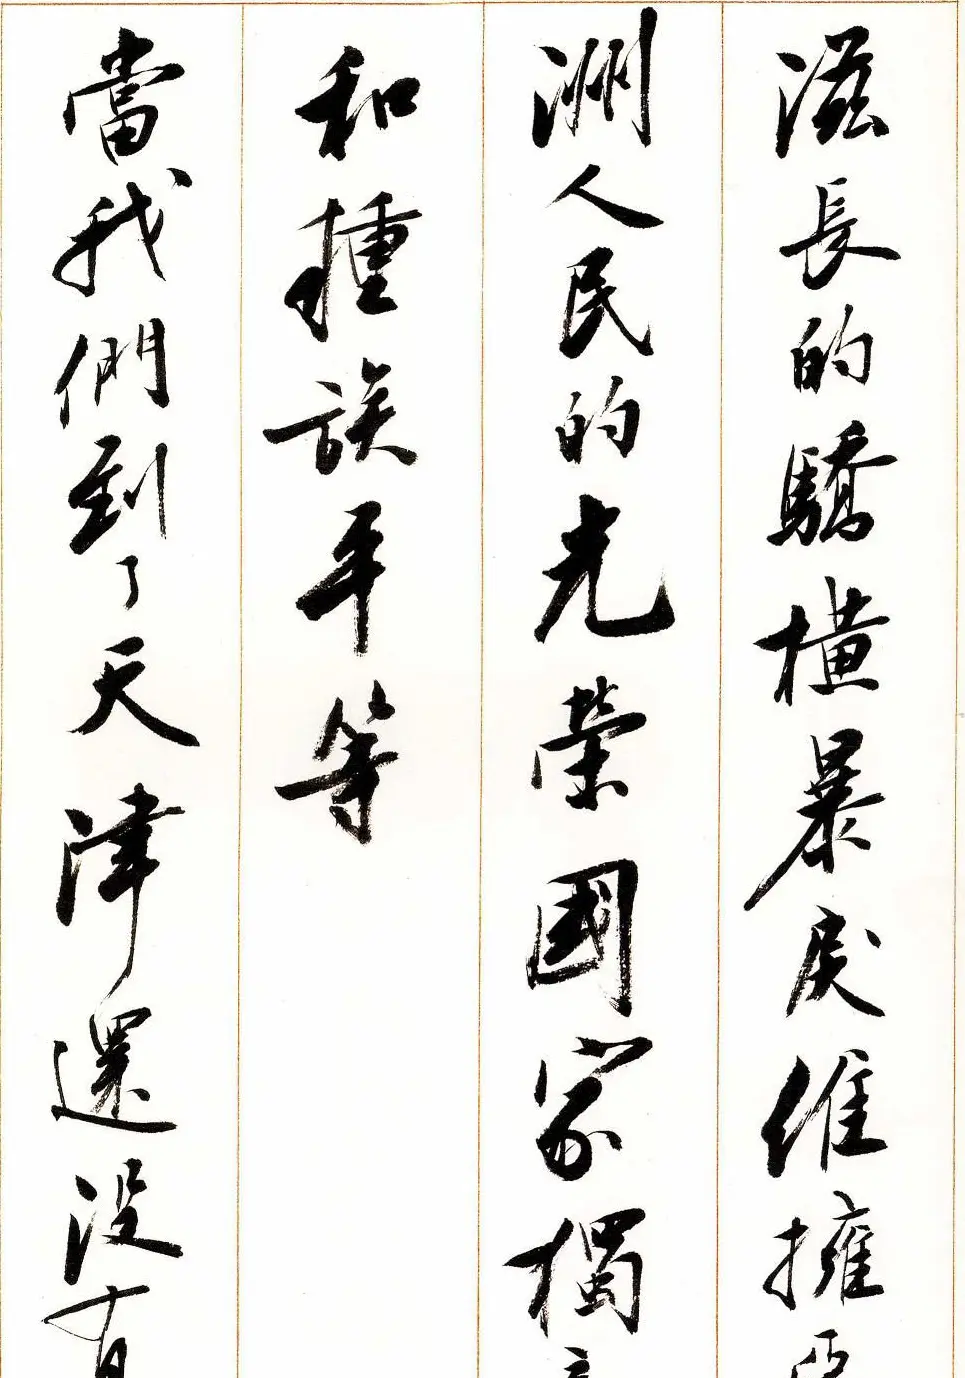 滋長的驕橫暴戾維擁亞
洲人民的光榮國家獨立
和種族平等
當我們到了天津還沒有